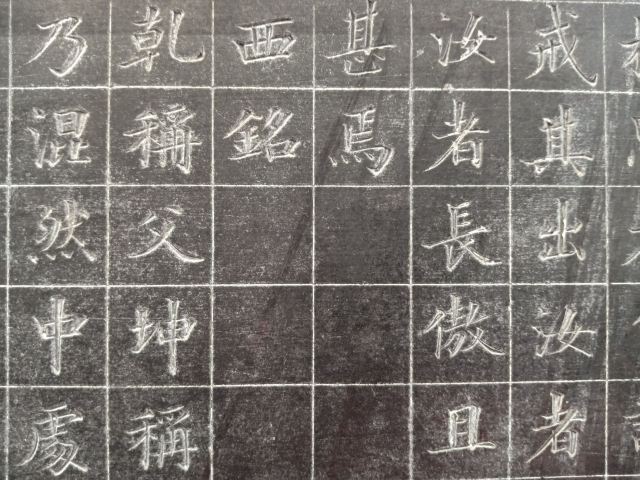 戒其出汝者
汝者長傲且
甚焉
西銘
乾稱父坤稱
乃混然中處